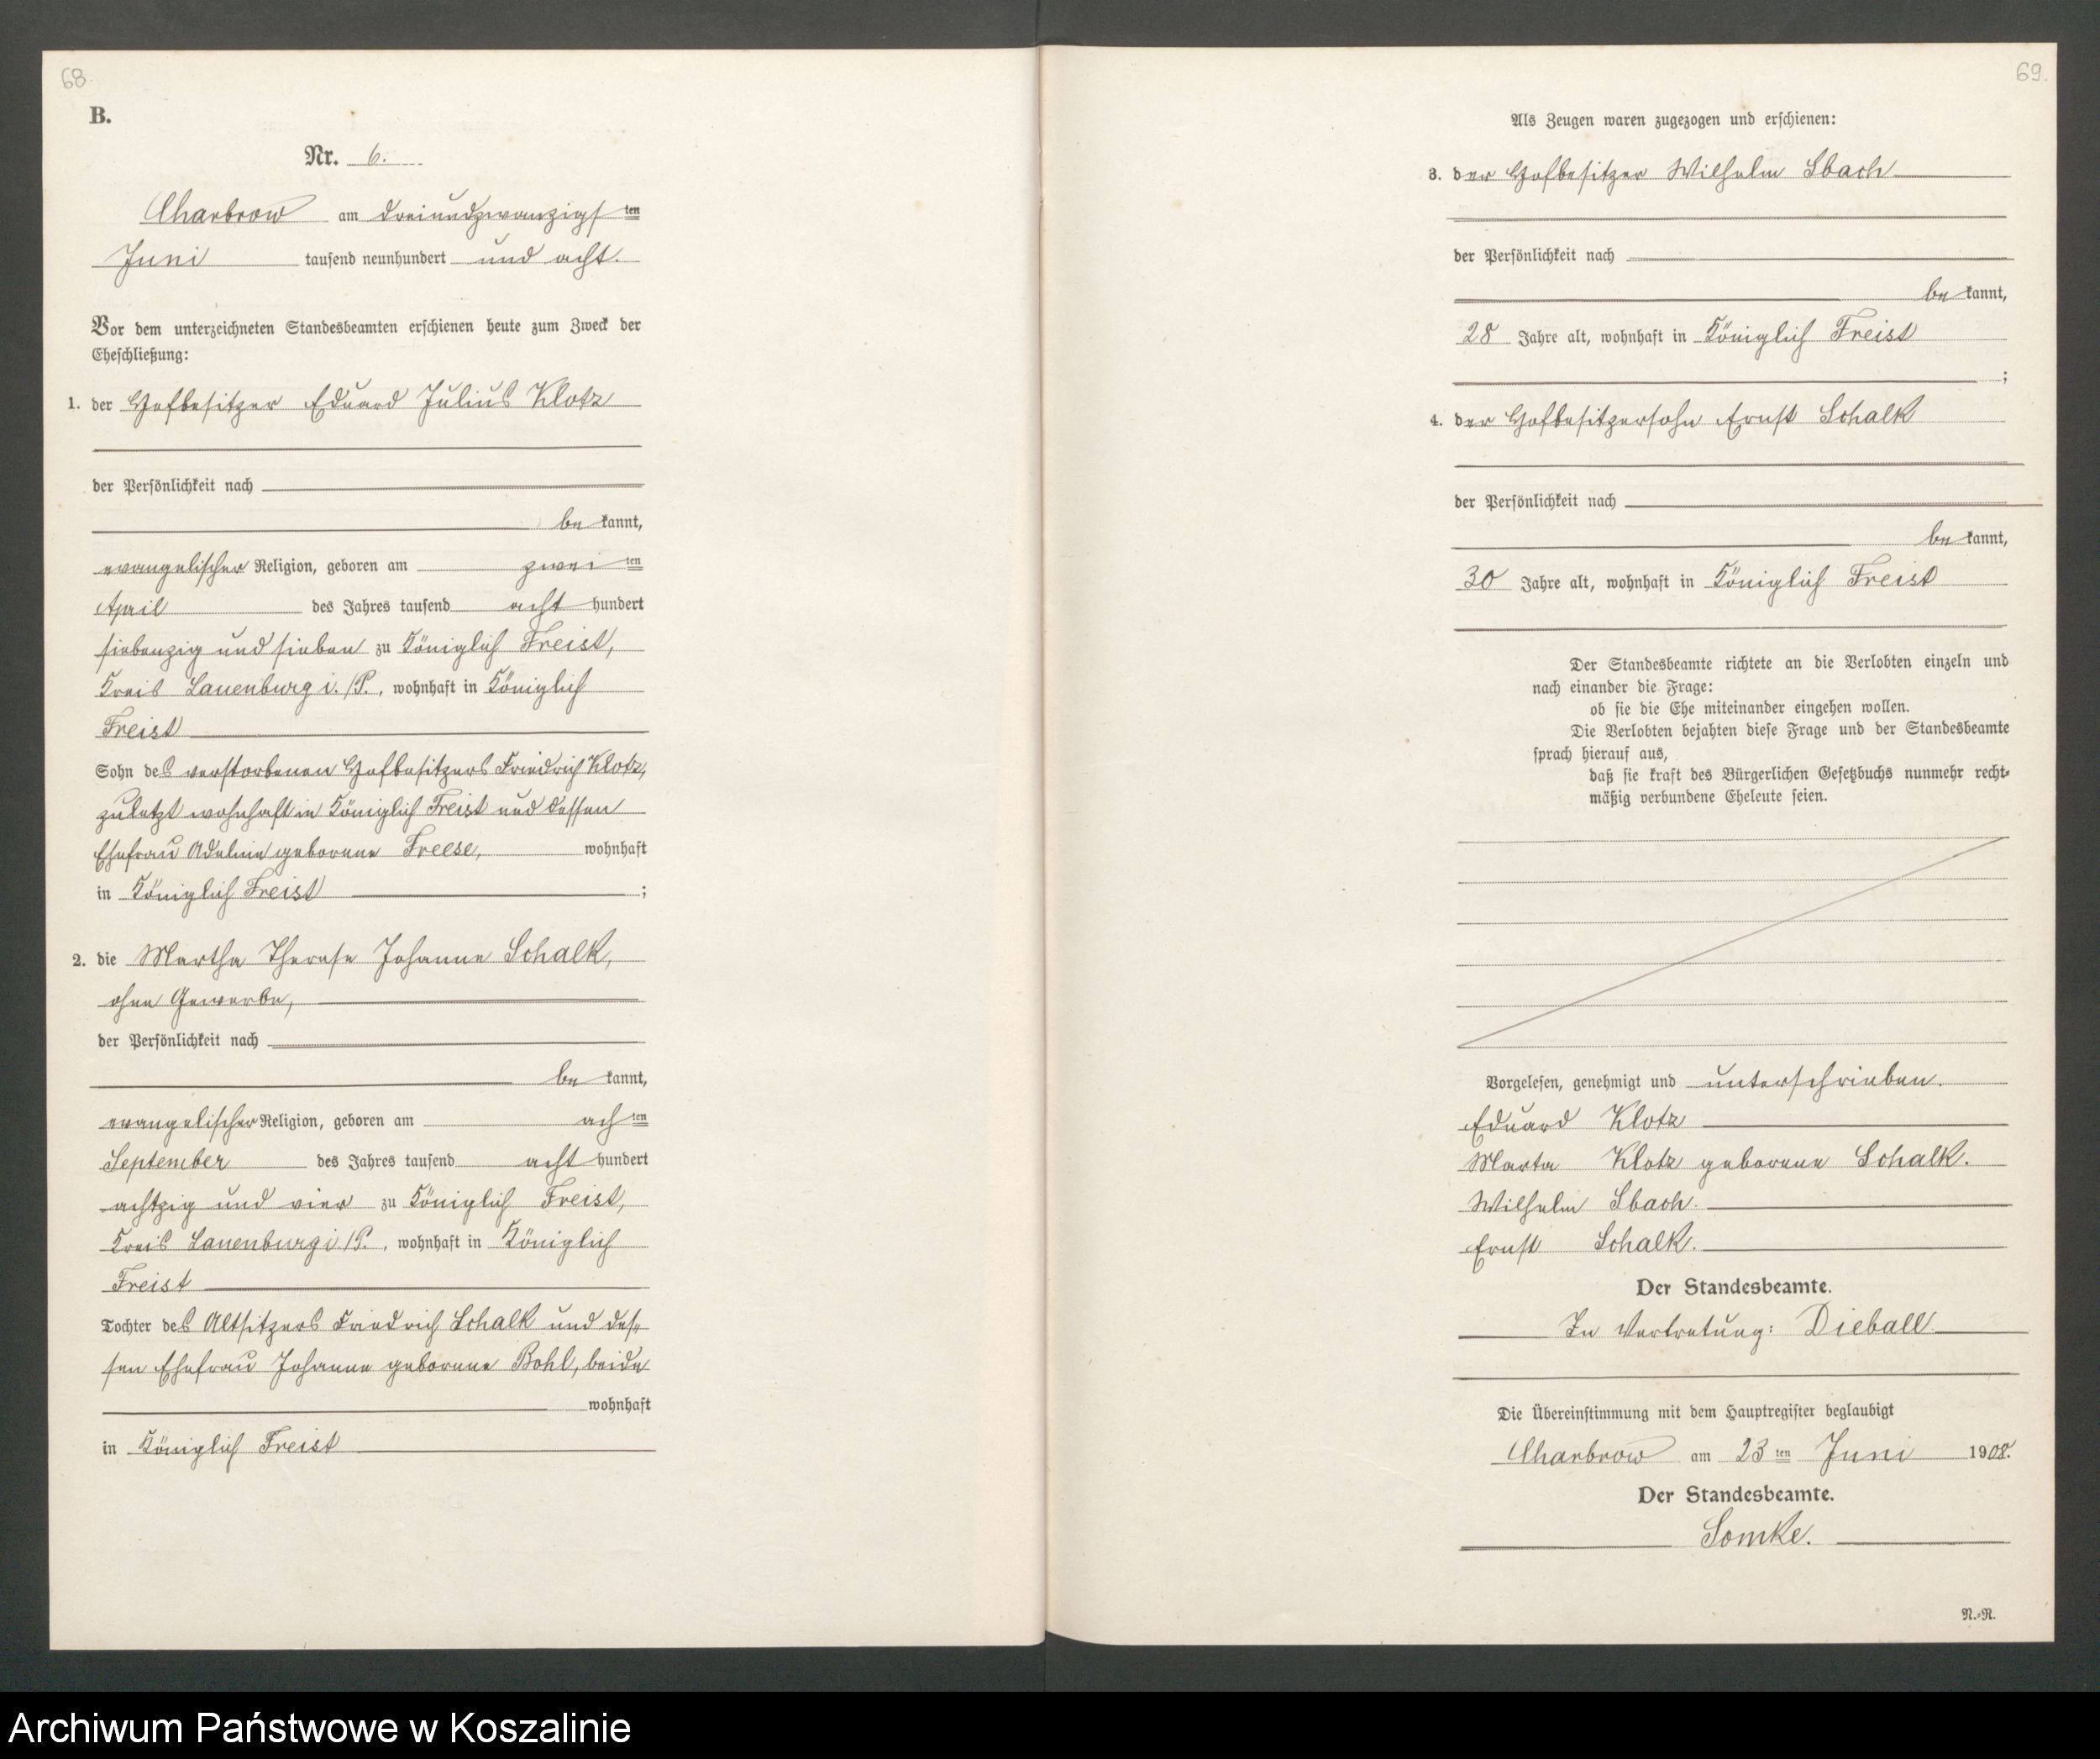 68.
B.
Nr. 6.
Charbrow am dreiundzwanzigsten
Juni tausend neunhundert und acht.
Vor dem unterzeichneten Standesbeamten erschienen heute zum Zweck der
Eheschließung:
1. der Hofbesitzer Eduard Julius Klotz
der Persönlichkeit nach
be kannt,
evangelischer Religion, geboren am zwei ten
April des Jahres tausend acht hundert
siebenzig und sieben zu Königlich Freist,
Kreis Lauenburg i./P., wohnhaft in Königlich
Freist
Sohn des verstorbenen Hofbesitzers Friedrich Klotz,
zuletzt wohnhaft in Königlich Freist und dessen
Ehefrau geborene Freese, wohnhaft
in Königlich Freist ;
2. die Martha Therese Johanne Schalk,
ohne Gewerbe,
der Persönlichkeit nach
be kannt,
evangelischer Religion, geboren am ach ten
September des Jahres tausend acht hundert
achtzig und vier zu Königlich Freist,
Kreis Lauenburg i/P., wohnhaft in Königlich
Freist
Tochter des Altsitzers Friedrich Schalk und des„
sen Ehefrau Johanne geborene Bohl, beide
wohnhaft
in Königlich Freist
69.
Als Zeugen waren zugezogen und erschienen:
3. der Hofbesitzer Wilhelm Sbach
der Persönlichkeit nach
be kannt,
28 Jahre alt, wohnhaft in Königlich Freist
;
4. der Hofbesitzersohn Ernst Schalk
der Persönlichkeit nach
be kannt,
30 Jahre alt, wohnhaft in Königlich Freist
Der Standesbeamte richtete an die Verlobten einzeln und
nach einander die Frage:
ob sie die Ehe miteinander eingehen wollen.
Die Verlobten bejahten diese Frage und der Standesbeamte
sprach hierauf aus,
daß sie kraft des Bürgerlichen Gesetzbuchs nunmehr recht-
mäßig verbundene Eheleute seien.
Vorgelesen, genehmigt und unterschrieben.
Eduard Klotz
Marta Klotz geborene Schalk.
Wilhelm Sbach.
Ernst Schalk.
Der Standesbeamte.
In Vertretung: Dieball
Die Übereinstimmung mit dem Hauptregister beglaubigt
Charbrow am 23 ten Juni 1908.
Der Standesbeamte.
Somke.
N.-N.
Archiwum Państwowe w Koszalinie